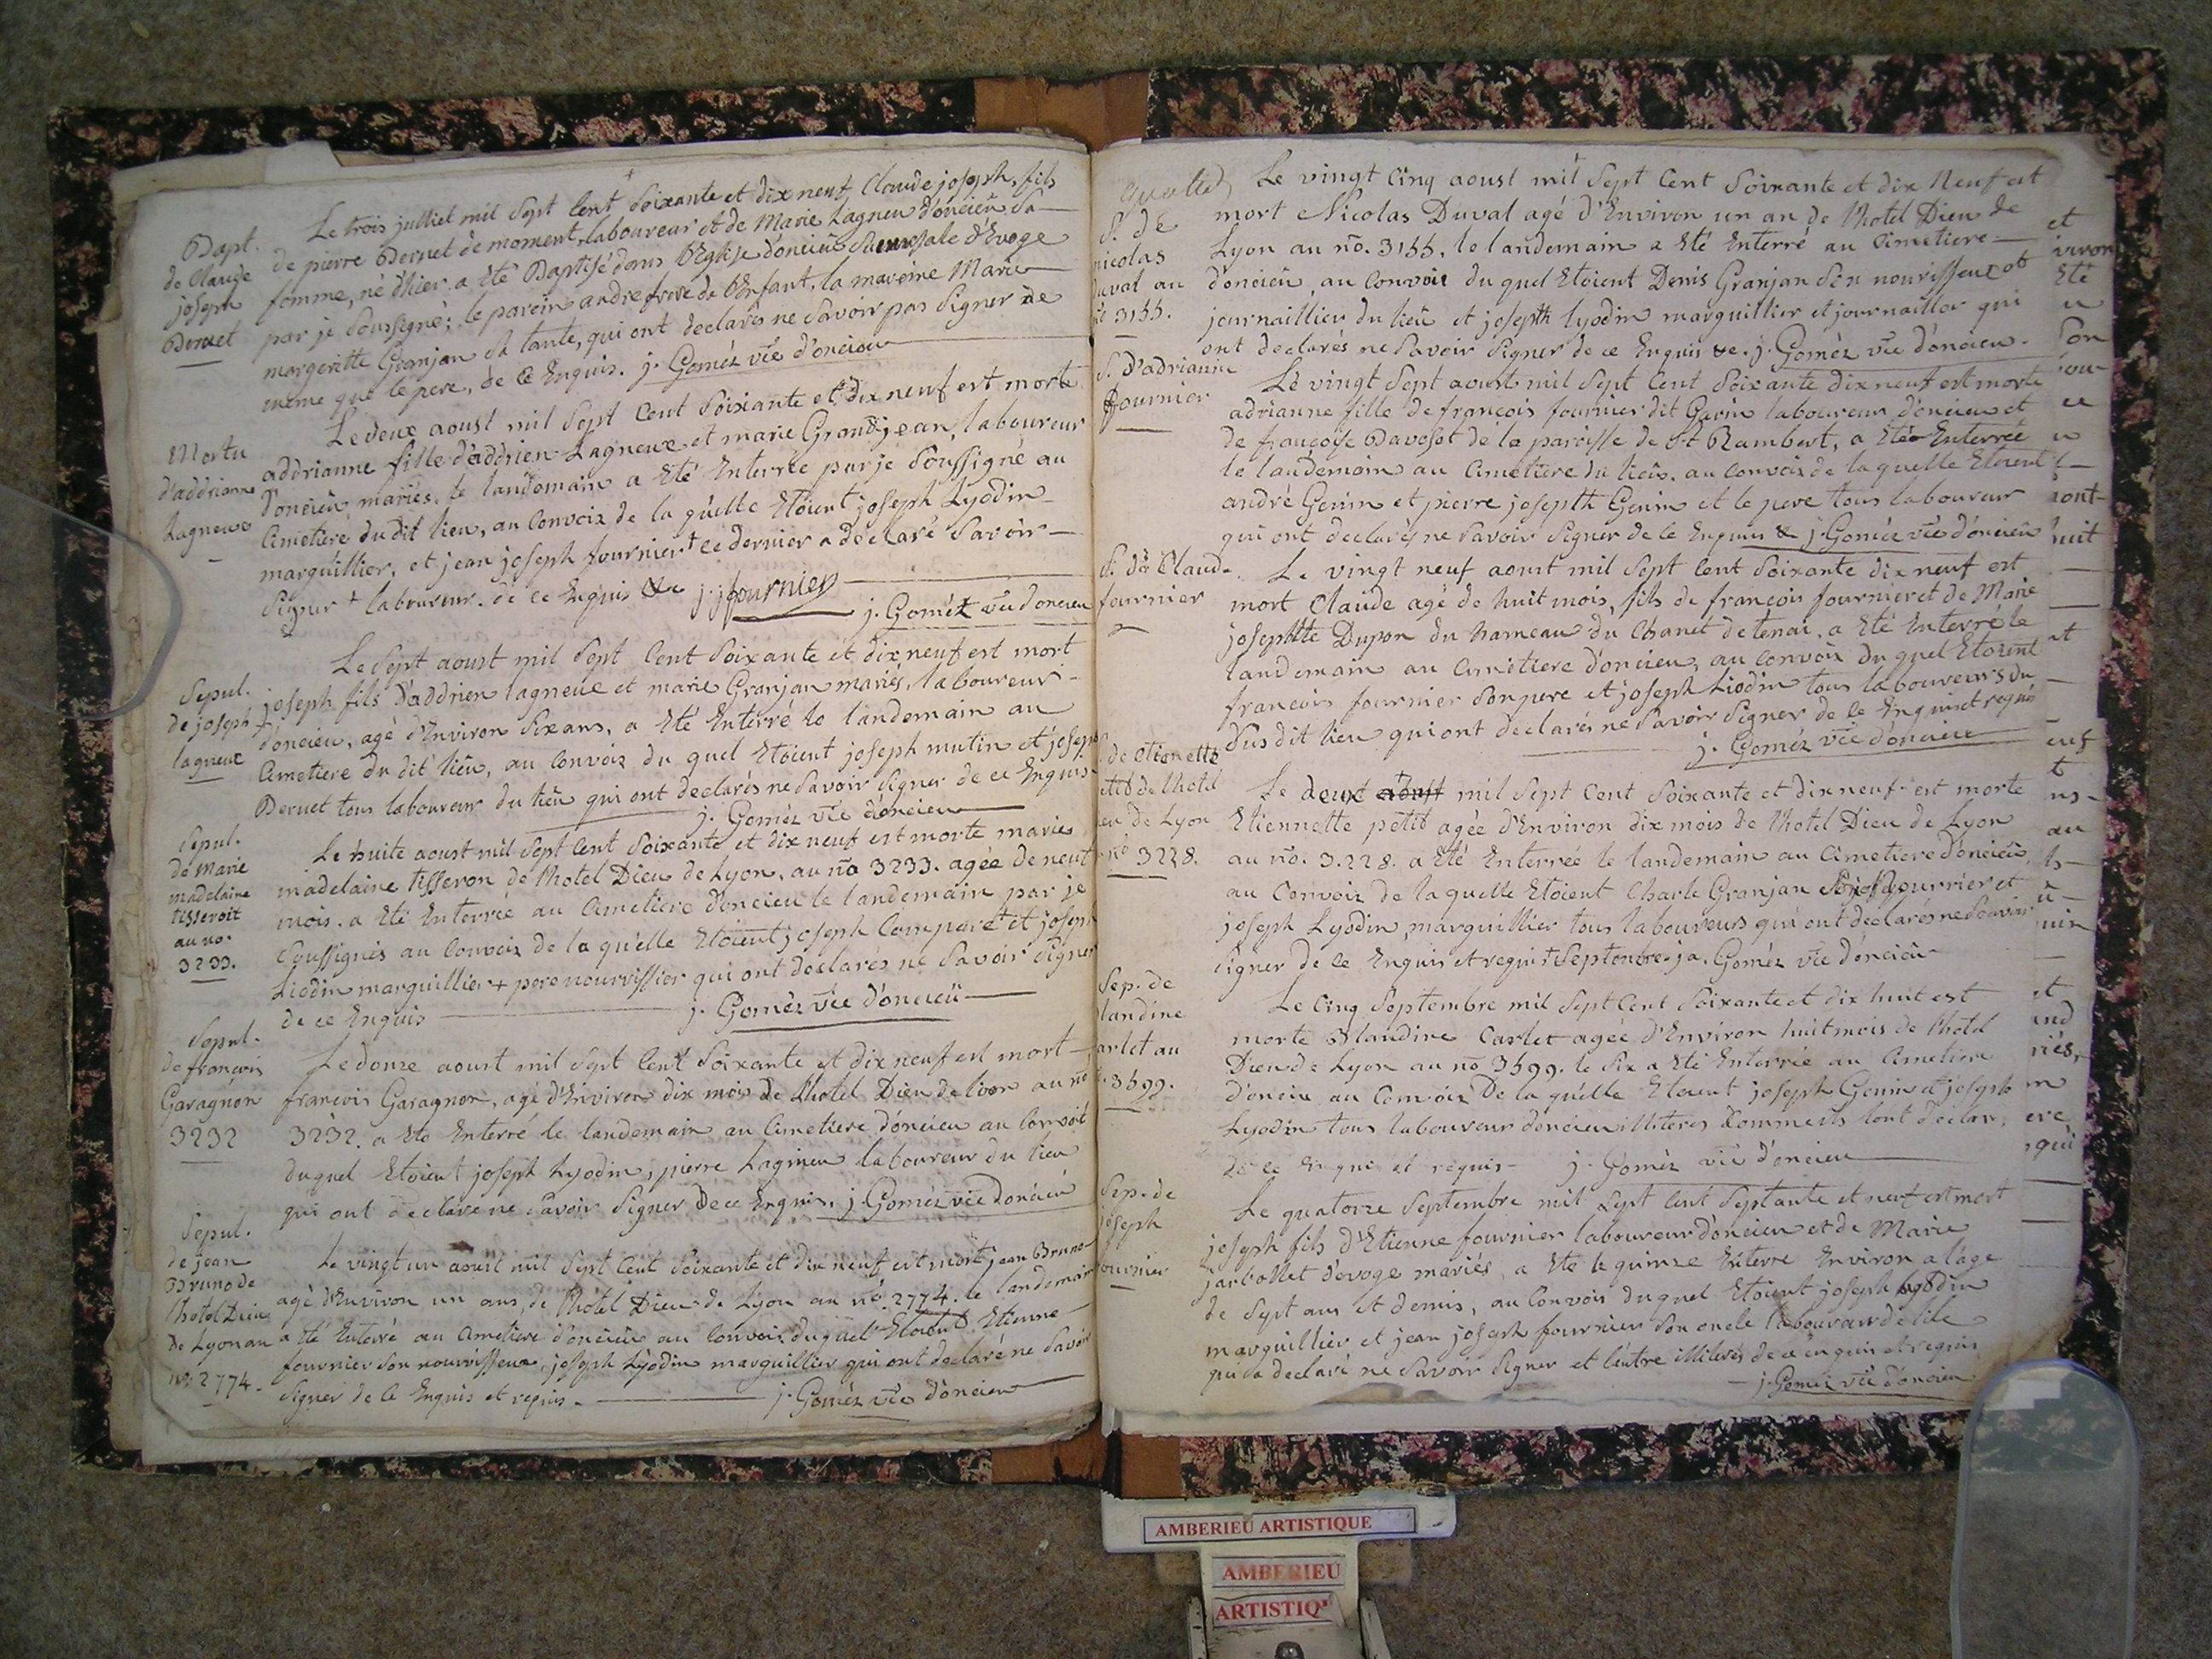 Bapt.
de Claude
joseph
Bernet
Le trois julliet mil sept cent soixante et dix neuf Claude joseph, fils
de pierre Bernet de moment laboureur et de Marie Lagneu d'oncieu sa
femme, né d'hier a été Baptisé dans l'Eglise d'oncieu succursale d'Evoge
par je soussigné; le parein andre frere de l'Enfant, la mareine Marie
margeritte Granjan sa tante, qui ont declarés ne savoir pas signer de
meme que le pere, de ce Enquis. j. Gomés vic d'oncieu
Mortu
d'addrianne
Lagneux
Le deux aoust mil sept cent soixante et dix neuf est morte
addrianne fille d'addrien Lagneux et marie Grandjean, laboureur
d'oncieu mariés. le landemain a Eté Enterrée par je soussigné au
Cimetiere du dit lieu, au Convoix de la quelle Etoient joseph Lyodin
marguillier, et jean joseph fournier + ce dernier a declaré savoir
signer + laboureur. de ce Enquis &c j. j fournier
j. Goméz vic d'oncieu
Sepul.
de joseph
lagneux
Le sept aoust mil sept cent soixante et dix neuf est mort
joseph fils d'addrien lagneux et marie Granjan mariés, laboureur
d'oncieu, agé d'Environ six ans, a Eté Enterré le landemain au
Cimetiere du dit lieu, au Convoix du quel Etoient joseph mutin et joseph
Bernet tous laboureur du lieu qui ont declarés ne savoir signer de ce Enquis
j. Goméz vic d'oncieu
Sepul.
de Marie
madelaine
tisseroit
au no.
3233.
Le huite aoust mil sept cent soixante et dix neuf est morte marie
madelaine tisseron de l'hotel Dieu de Lyon, au no 3233. agée de neuf
mois. a Eté Enterrée au Cimetiere d'oncieu le landemain par je
soussignés au Convoix de la qu'elle Etoient joseph Comparet et joseph
Liodin marguillier + pere nourrissier qui ont declarés ne savoir signer
de ce Enquis j. Goméz vic d'oncieu
Sepul.
de francois
Garagnon
3232
Le douze aoust mil sept cent soixante et dix neuf est mort
francois Garagnon, agé d'Environ dix mois de l'hotel Dieu de lion au no
3232. a Eté Enterré le landemain au Cimetiere d'oncieu au Convoit
duquel Etoient joseph Lyodin, pierre Lagineu laboureur du lieu
qui ont declare ne savoir signer de ce Enquis. j. Goméz vic d'oncieu
Sepul.
de jean
Bruno de
l'hotel Dieu
de Lyon au
no. 2774.
Le vingt un aoust mil sept cent soixante et dix neuf est mort jean Bruno
agé d'Environ un ans, de l'hotel Dieu de Lyon au no. 2774. le landemain
a été Enterré au Cimetiere d'oncieu au Convoix duquel Etoient Etienne
fournier son nourrisseur, joseph Lyodin marguillier qui ont declaré ne savoir
signer de ce Enquis et requis. j. Goméz vic d'oncieu
S. de
nicolas
duval au
3155.
Le vingt cinq aoust mil sept cent soixante et dix Neuf est
mort Nicolas Duval agé d'Environ un an de l'hotel Dieu de
Lyon au no. 3155. le landemain a Eté Enterré au Cimetiere
d'oncieu, au Convoix du quel Etoient Denis Granjan son nourisseur et
journaillier du lieu et josepth lyodin marguillier et journaillier qui
ont declarés ne savoir signer de ce Enquis &c. j. Goméz vic d'oncieu.
S. D'adrianne
fournier
Le vingt sept aoust mil sept cent soixante dix neuf est morte
adrianne fille de francois fournier dit Garin laboureur d'oncieu et
de francoise Bavosot de la paroisse de St Rambert, a Eté Enterrée
le landemain au Cimetiere du lieu. au Convoix de la quelle Etoient
andre Genin et pierre josepth Genin et le pere tous laboureur
qui ont declarés ne savoir signer de ce Enquis & j. Goméz vic d'oncieu
S. de Claude
fournier
Le vingt neuf aoust mil sept cent soixante dix neuf est
mort Claude agé de huit mois, fils de francois fournier et de Marie
josephtte Dupon du hameau du Chanet de tenai, a Eté Enterré le
landemain au Cimetiere d'oncieu, au Convoix du quel Etoient
francois fournier son pere et joseph Liodin tous laboureurs du
susdit lieu qui ont declarés ne savoir signer de ce Enquis et requis
j. Goméz vic d'oncieu
de Etienette
petit de l'hotel
Dieu de Lyon
no 3228.
Le deux aoust mil sept cent soixante et dix neuf est morte
Etiennette petit agée d'Environ dix mois de l'hotel Dieu de Lyon
au no. 3.228. a Eté Enterrée le landemain au Cimetiere d'oncieu
au Convoix de la quelle Etoient Charle Granjan nourrier et
joseph Lyodin, marguillier tous laboureurs qui ont declarés ne savoir
signer de ce Enquis et requis + septembre. ja. Goméz vic d'oncieu
Sep. de
landine
arlet au
3599.
Le Cinq septembre mil sept cent soixante et dix huit est
morte Blandine Carlet agée d'Environ huit mois de l'hotel
Dieu de Lyon au no 3599. le six a Eté Enterrée au Cimetiere
d'oncieu au Convoix de la qu'elle Etoient joseph Genin et joseph
Lyodin tous laboureur d'oncieu illiterés comme ils l'ont declaré
de ce Enquis et requis j. Goméz vic d'oncieu
Sep. de
joseph
fournier
Le quatorze septembre mil sept cent septante et neuf est mort
joseph fils d'Etienne fournier laboureur d'oncieu et de Marie
jarbollet d'evoge mariés, a Eté le quinze Enterre Environ a l'age
de sept ans et demis, au Convois duquel Etoient joseph Lyodin
marguillier et jean joseph fournier son oncle laboureur
qui a declaré ne savoir signer et l'autre illiterés de ce enquis et requis
j. Goméz vic d'oncieu
AMBERIEU ARTISTIQUE
AMBERIEU
ARTISTIQ'